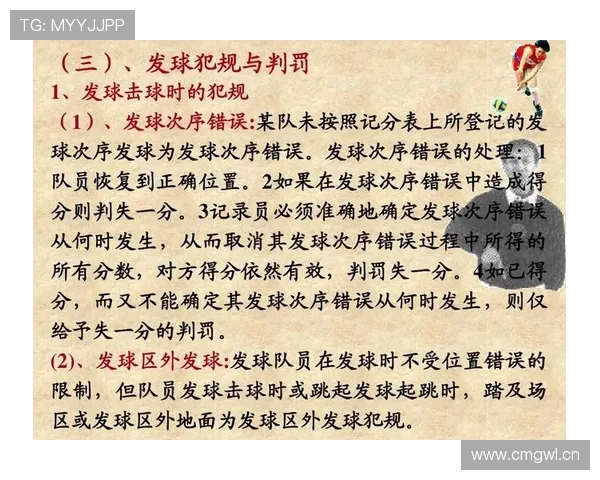 TG: MYYJJPP
（三）、发球犯规与判罚
1、发球击球时的犯规
（1）、发球次序错误:某队未按照记分表上所登记的发
球次序发球为发球次序错误。发球次序错误的处理：1
队员恢复到正确位置。2如果在发球次序错误中造成得
分则判失一分。3记录员必须准确地确定发球次序错误
从何时发生，从而取消其发球次序错误过程中所得的
所有分数，对方得分依然有效，判罚失一分。4如已得
分，而又不能确定其发球次序错误从何时发生，则仅
给予失一分的判罚。
(2)、发球区外发球:发球队员在发球时不受位置错误的
限制，但队员发球击球时或跳起发球起跳时，踏及场
区或发球区外地面为发球区外发球犯规。
www.cmgwl.cn